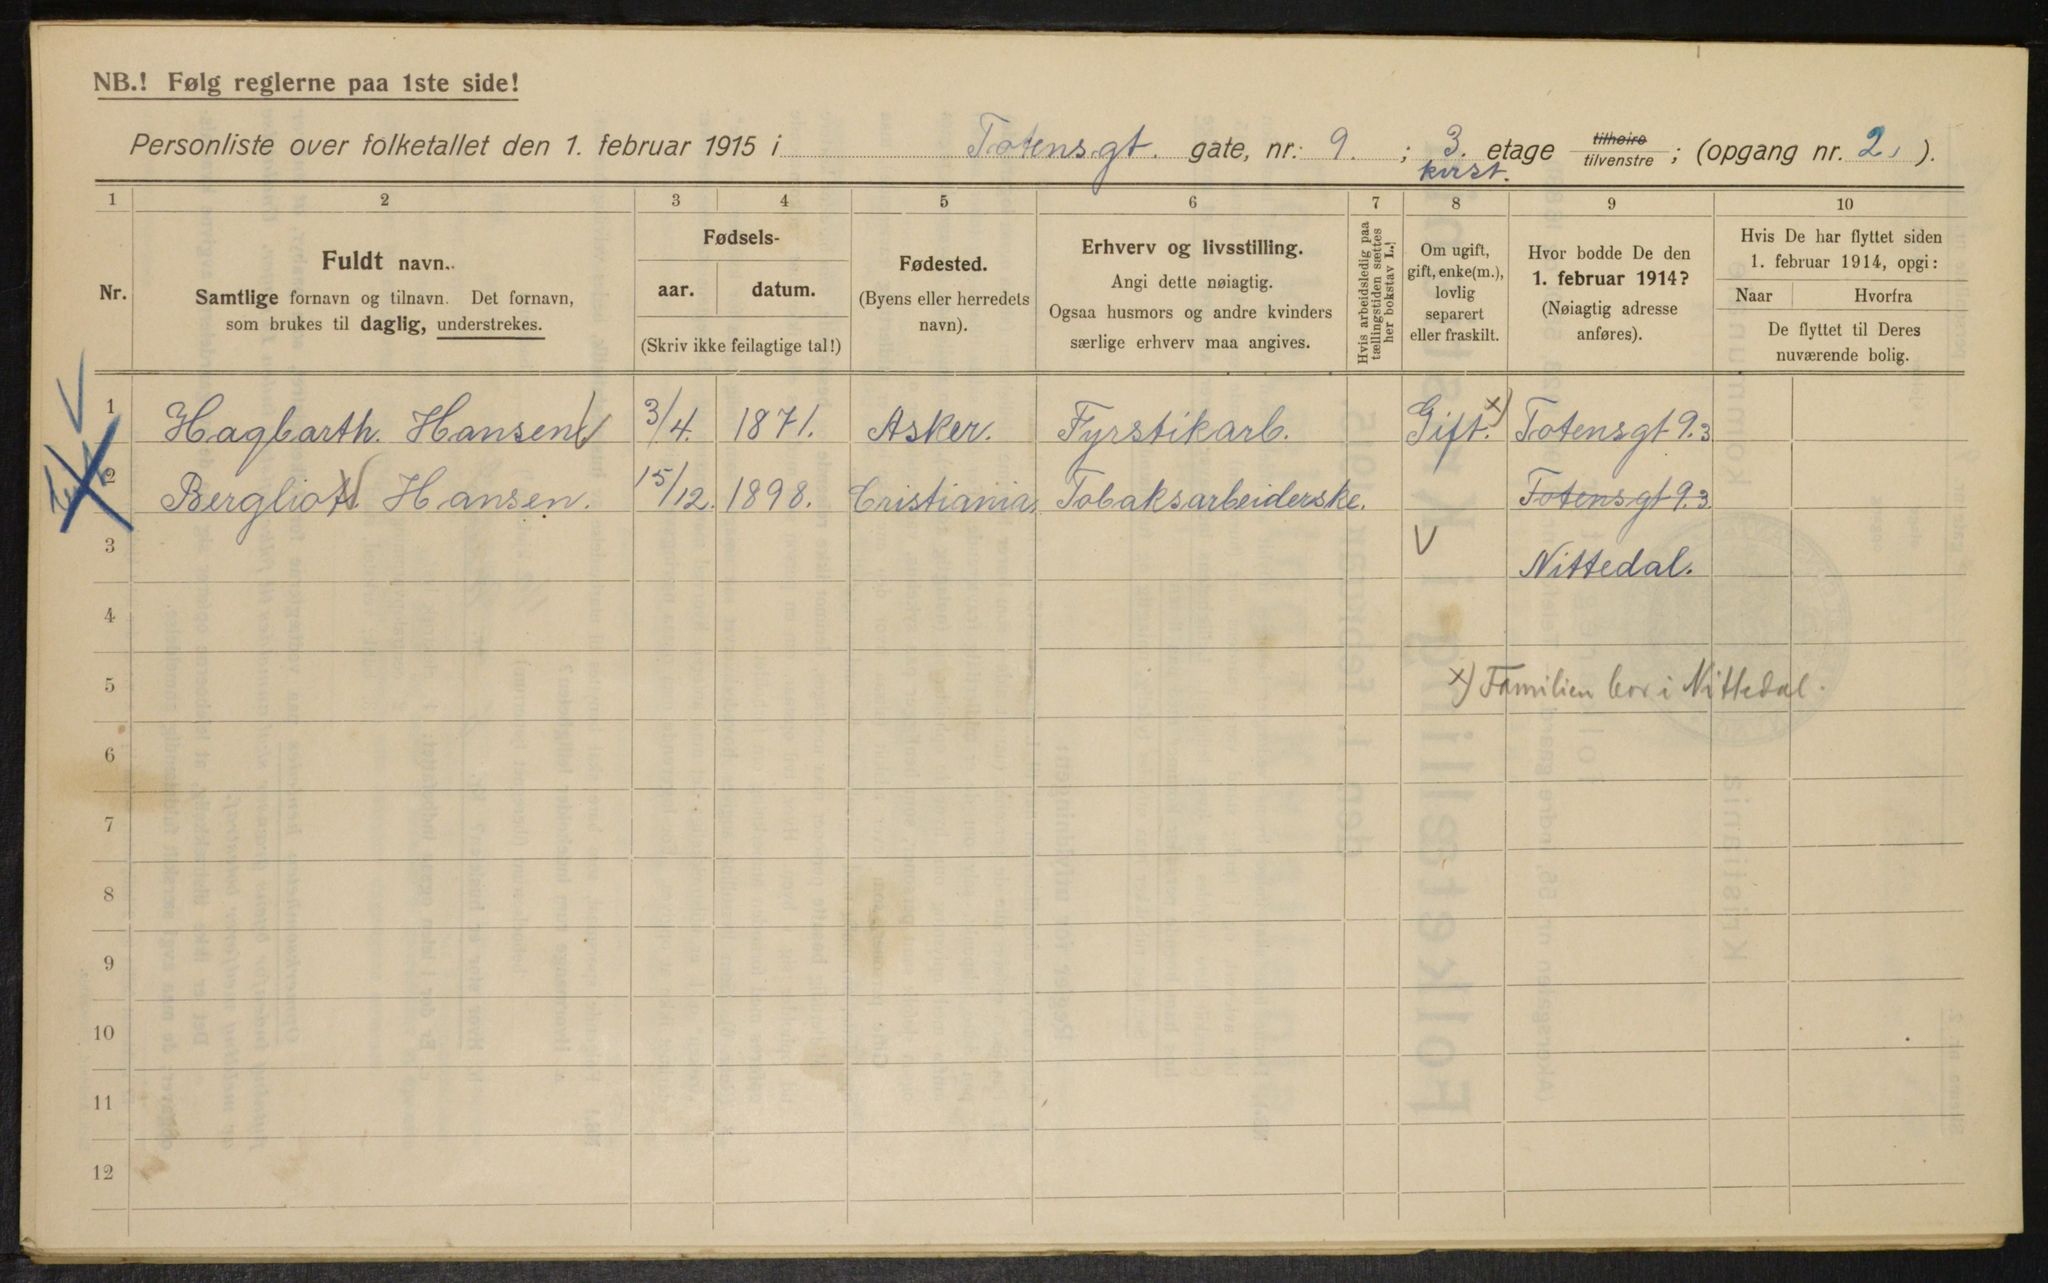 NB.! Følg reglerne paa 1ste side!
Personliste over folketallet den 1. februar 1915 i Totensgt. gate, nr. 9. ; 3. etage tilhøire tilvenstre ; (opgang nr. 2, ).
kvist.
1 2 3 4 5 6 7 8 9 10
Nr.
Fuldt navn.
Samtlige fornavn og tilnavn. Det fornavn,
som brukes til daglig, understrekes.
Fødsels-
aar. datum.
(Skriv ikke feilagtige tal!)
Fødested.
(Byens eller herredets
navn).
Erhverv og livsstilling.
Angi dette nøiagtig.
Ogsaa husmors og andre kvinders
særlige erhverv maa angives.
Hvis arbeidsledig paa
tællingstiden sættes
her bokstav L.!
Om ugift,
gift, enke(m.),
lovlig
separert
eller fraskilt.
Hvor bodde De den
1. februar 1914?
(Nøiagtig adresse
anføres).
Hvis De har flyttet siden
1. februar 1914, opgi:
Naar Hvorfra
De flyttet til Deres
nuværende bolig.
1 Hagbarth. Hansen 3/4. 1871. Asker. Fyrstikarb. Gift. x) Totensgt 9.3
2 Bergliot. Hansen. 15/12. 1898. Cristiania, Tobaksarbeiderske. Totensgt 9.3
3 Nittedal.
4
5 x) Familien bor i Nittedal.
6
7
8
9
10
11
12